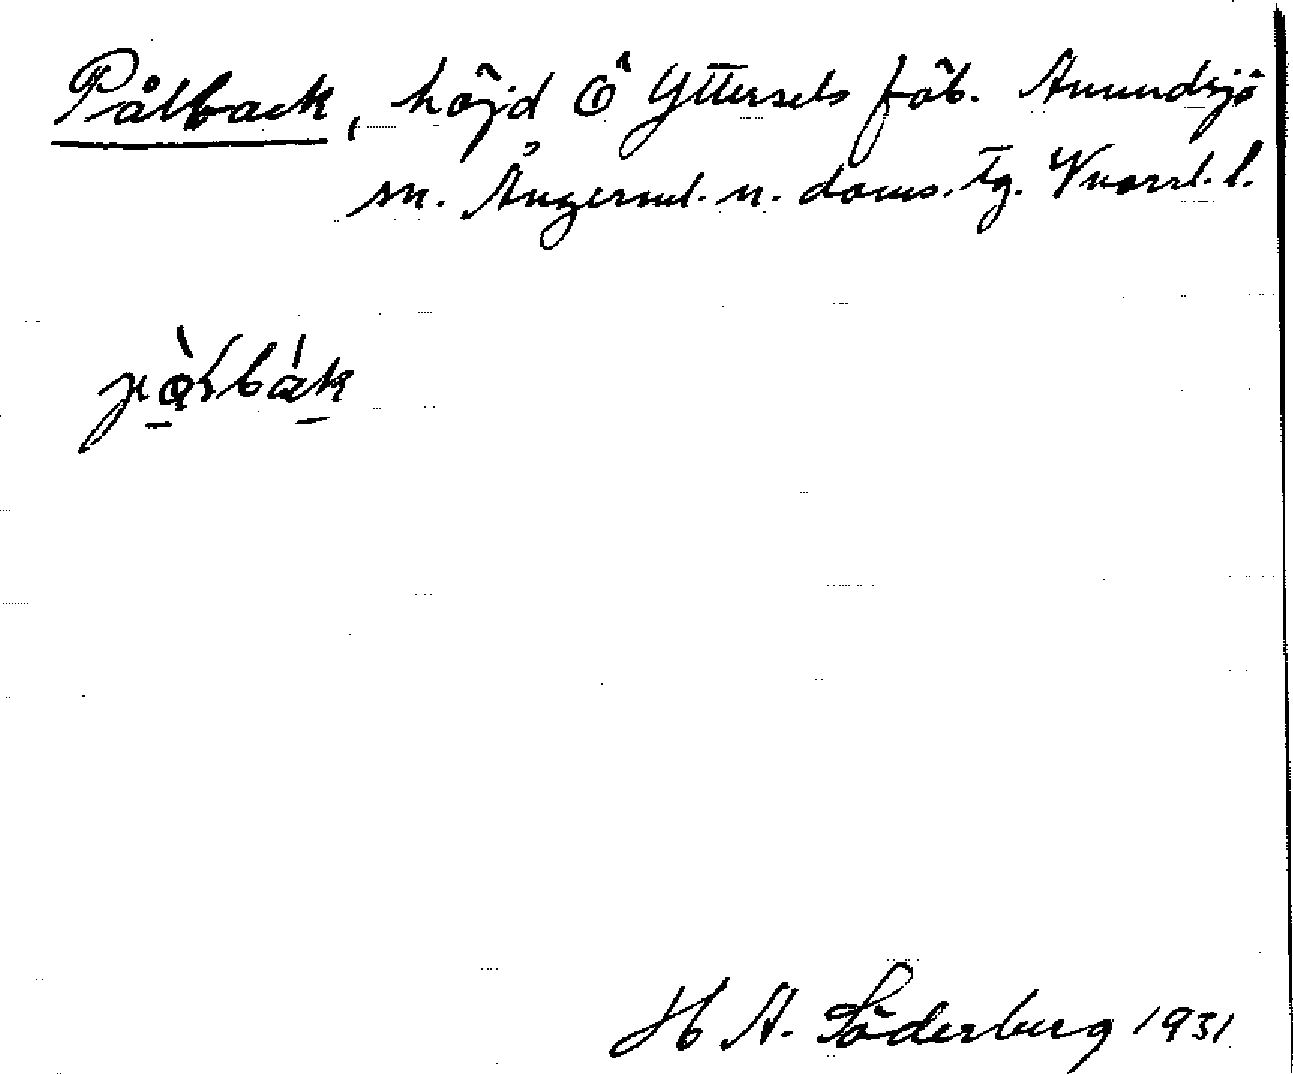 Pålback, höjd Ö Yttersels fäb. Anundsjö
sn. Ångerml. n. doms. tg. Vnorrl. l.
pàɭbák
H A. Söderberg 1931